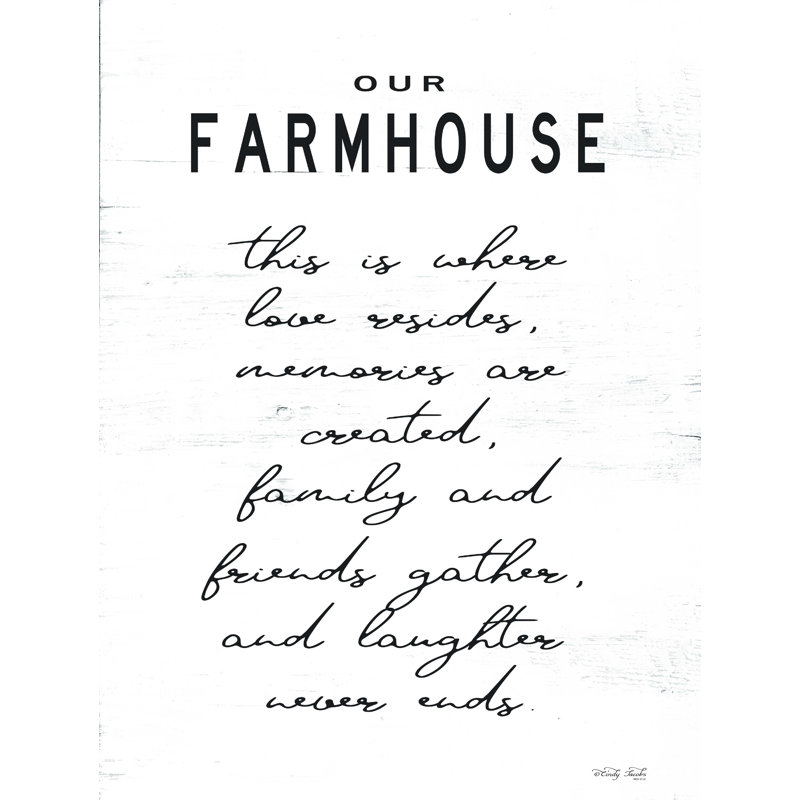 OUR
FARMHOUSE
this is where
love resides,
memories are
created,
family and
friends gather,
and laughter
never ends.
©Cindy Jacobs